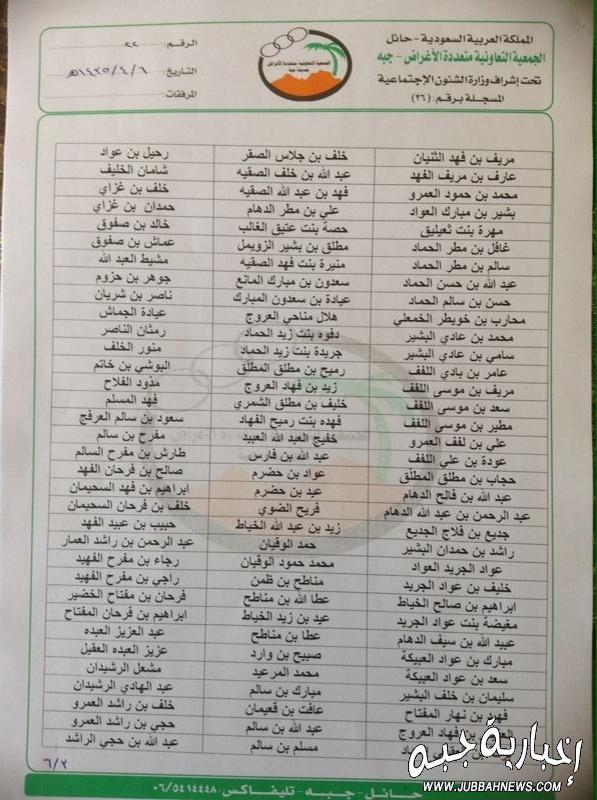 المملكة العربية السعودية - حائل
الجمعية التعاونية متعددة الأغراض - جبه
تحت إشراف وزارة الشئون الإجتماعية
المسجلة برقم: (٢٦)
الرقم: ٢٢
التاريخ: ١٤٣٥/٤/٦هـ
المرفقات:
مريف بن فهد الثنيان خلف بن جلاس الصقر رحيل بن عواد
عارف بن مريف الفهد عبد الله بن خلف الصقيه شامان الخليف
محمد بن حمود العمرو فهد بن عبد الله الصقيه خلف بن غزاي
بشير بن مبارك العواد علي بن مطر الدهام حمدان بن غزاي
مهرة بنت ثعيليق حصة بنت عتيق الغالب خالد بن صفوق
غافل بن مطر الحماد مطلق بن بشير الزويمل عماش بن صفوق
سالم بن مطر الحماد منيرة بنت فهد الصقيه مشيط العبد الله
عبد الله بن حسن الحماد سعدون بن مبارك المانع جوهر بن حزوم
حسن بن سالم الحماد عيادة بن سعدون المبارك ناصر بن شريان
محارب بن خويطر الخمعلي هلال مناحي العروج عيادة الجماش
محمد بن عادي البشير دفوه بنت زيد الحماد رمثان الناصر
سامي بن عادي البشير جريدة بنت زيد الحماد منور الخلف
عامر بن بادي اللفف رميح بن مطلق المطلق البوشي بن خاتم
مريف بن موسى اللفف زيد بن فهاد العروج مذود الفلاح
سعد بن موسى اللفف خليف بن مطلق الشمري فهد المسلم
مطير بن موسى اللفف فهده بنت رميح الفهاد سعود بن سالم العرفج
علي بن لفف العمرو خفيج العبد الله العبيد مفرح بن سالم
عودة بن علي اللفف عبد الله بن فارس طارش بن مفرح السالم
حجاب بن مطلق المطلق عواد بن حضرم صالح بن فرحان الفهد
عبد الله بن فالح الدهام عيد بن حضرم ابراهيم بن فهد السحيمان
عبد الرحمن بن عبد الله الدهام فريح الضوي خلف بن فرحان السحيمان
جديع بن فلاج الجديع زيد بن عبد الله الخياط حبيب بن عبيد الفهد
راشد بن حمدان البشير حمد الوقيان عبد الرحمن بن راشد العمار
عواد الجريد العواد محمد حمود الوقيان رجاء بن مفرح الفهيد
خليف بن عواد الجريد مناطح بن ظمن راجي بن مفرح الفهيد
ابراهيم بن صالح الخياط عطا الله بن مناطح فرحان بن مفتاح الخضير
مغيضة بنت عواد الجريد عيد بن زيد الخياط ابراهيم بن فرحان المفتاح
عبيد الله بن سيف الدهام عطا بن مناطح عبد العزيز العبده
مبارك بن عواد العبيكة صبيح بن وارد عزيز العبده العقيل
سعد بن عواد العبيكة محمد المرعيد مشعل الرشيدان
سليمان بن خلف البشير مبارك بن سالم عبد الهادي الرشيدان
فهد بن نهار المفتاح عافت بن قعيمان خلف بن راشد العمرو
بن فهاد العروج عبد الله بن سالم حجي بن راشد العمرو
مسلم بن سالم عبد الله بن حجي الراشد
٦/٢
حائل - جبه - تليفاكس: ٠٦/٥٤١٤٤٤٨
إخبارية جبه
WWW.JUBBAHNEWS.COM